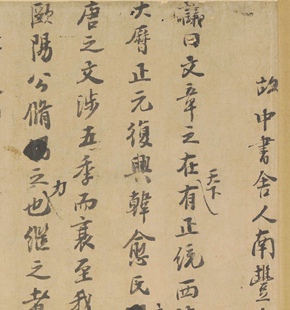 故中書舍人南豐
議曰文章之在天下有正統西
大曆正元復興韓愈氏
唐之文涉五季而衰至我
歐陽公脩之力也繼之者